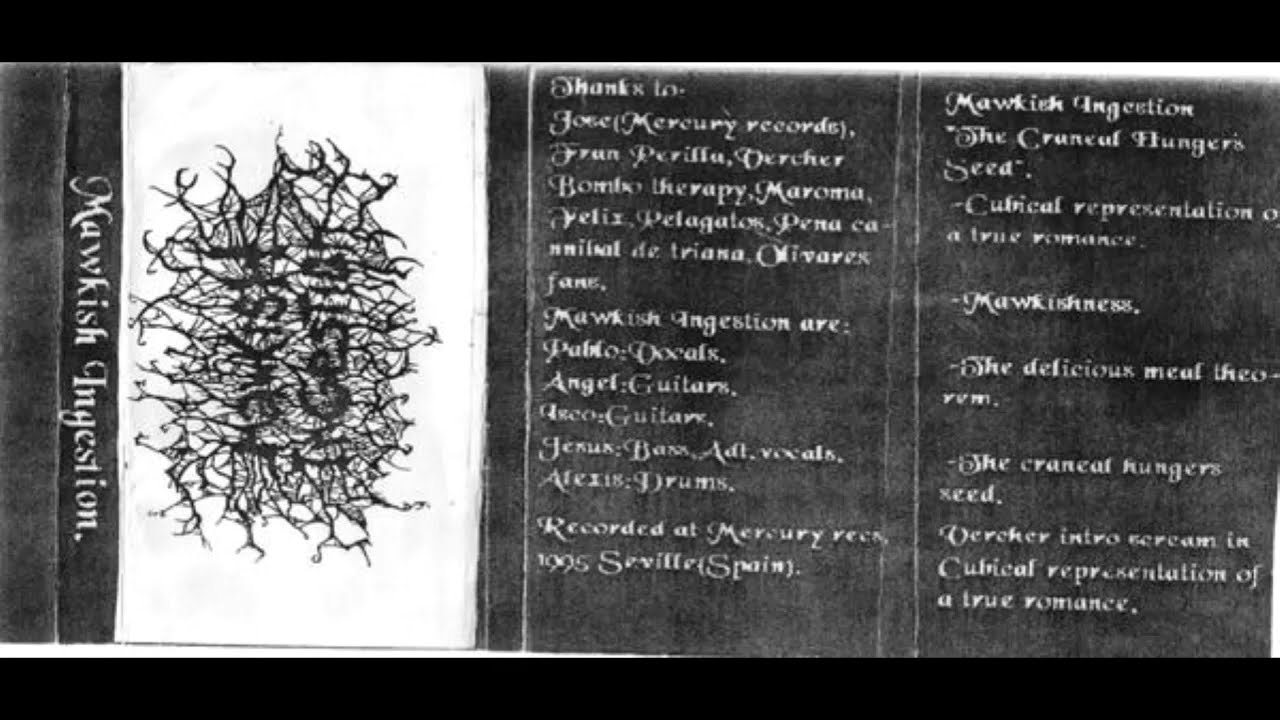 Mawkish Ingestion.
Thanks to:
Jose(Mercury records),
Fran Perilla, Vercher
Bombo therapy, Maroma,
Felix, Pelagatos, Pena ca-
nnibal de triana, Olivares
fans.
Mawkish Ingestion are:
Pablo:Vocals.
Angel:Guitars.
Isco:Guitars.
Jesus:Bass, Adt. vocals.
Alexis:Drums.
Recorded at Mercury recs,
1995 Seville(Spain).
Mawkish Ingestion
"The Craneal Hungers
Seed".
-Cubical representation o
a true romance.
-Mawkishness.
-The delicious meal theo-
rem.
-The craneal hungers
seed.
Vercher intro scream in
Cubical representation of
a true romance.